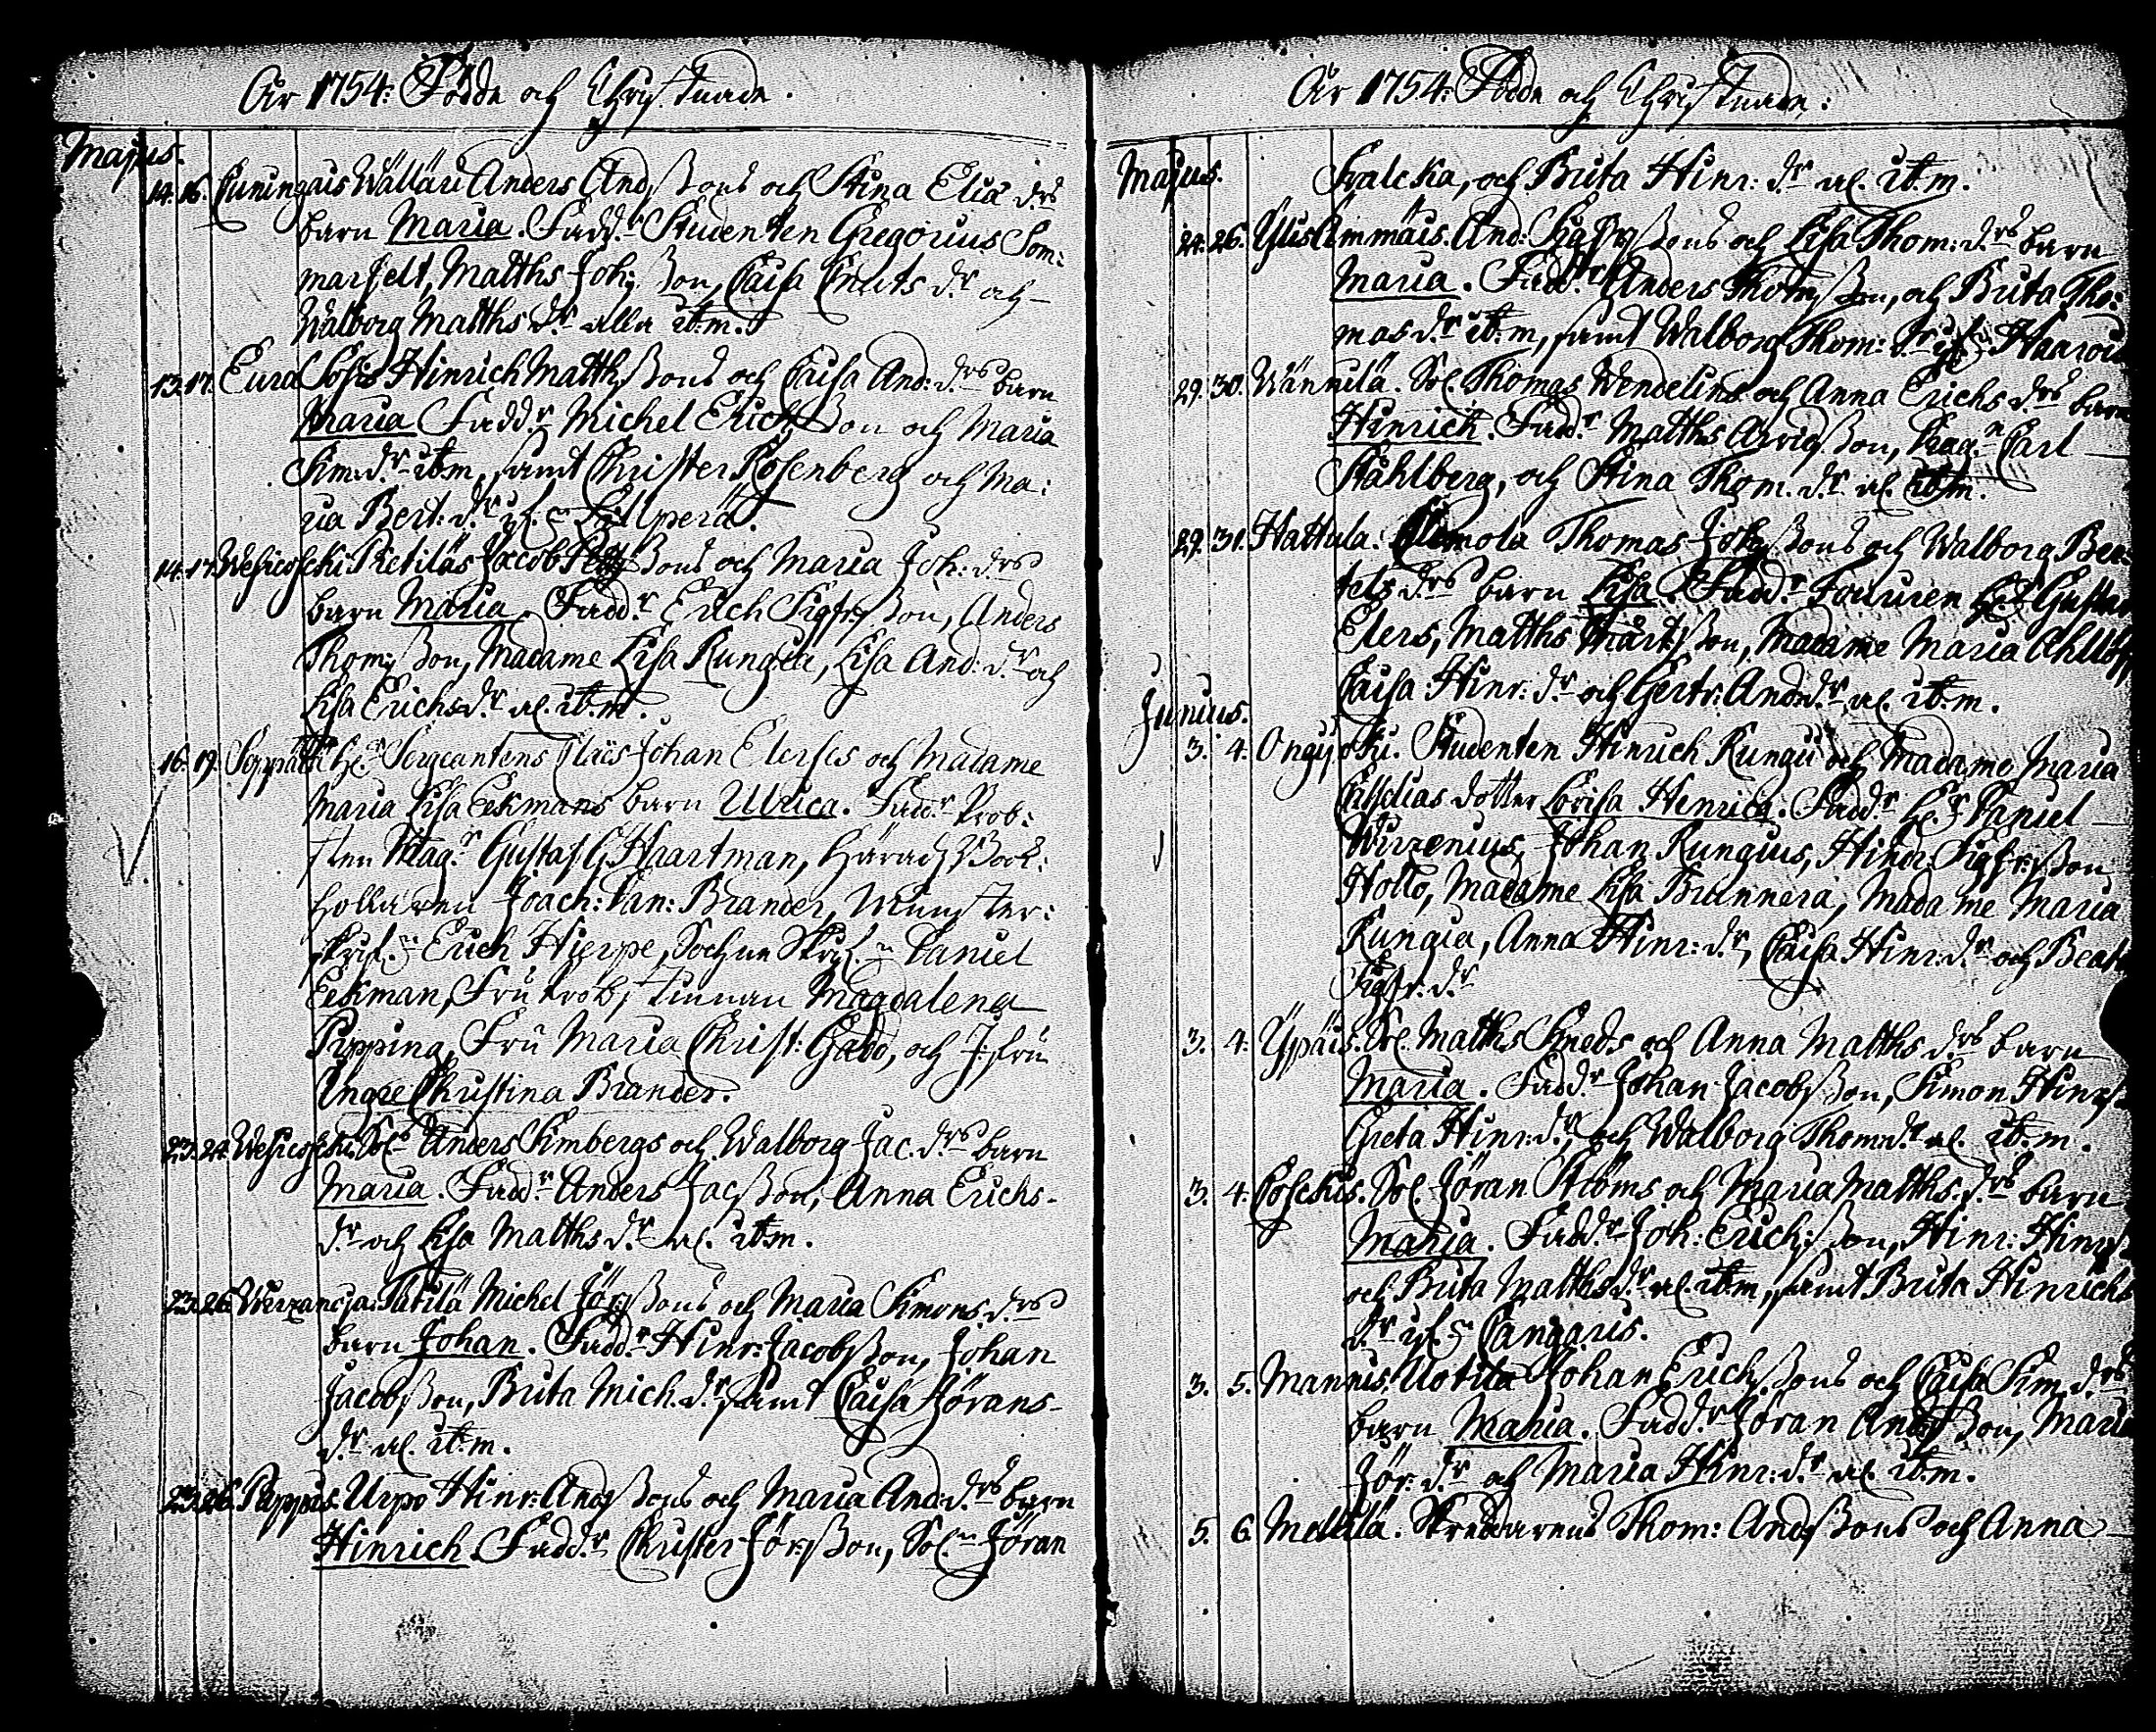 År 1754: Födde och Christnade.
Majus.
14. 16. Cuningais Wälläri Anders Andsßons och Stina Eliæ drs
barn Maria. Fadd.r Studenten Gregorius Som:
marfelt, Matths Joh:sson, Caisa Cnuts dr och
Walborg Matths dr alla ib:m.
13. 17. Eura Sofis Hinrich Matthsßons och Caisa And: drs barn
Maria Fadd.r Michel Erichsßon och Maria
Sim: dr ib:m, samt Christer Rosenberg och Ma:
ria Bert: dr if.n Sällperä.
14. 17. Wesicoscki Pietiläs Jacob ßons och Maria Joh: drs
barn Maria. Fadd.r Erich Sigfr:ßon, Anders
Thom:sßon, Madame Lisa Rungia, Lisa And: dr och
Lisa Erichsdr al. ib:m.
16. 19. Seppälä H:r Sergeantens Claës Johan Elerses och Madame
Maria Lisa Eekmans barn Ulrica. Fadd.r Prob:
sten Mag.r Gustaf G. Haartman, Häradzbook:
hollaren Joach: Dan: Brander, Munster:
skrif.n Erich Hierpe, Sochne Skrif.n Daniel
Eekman, Fru Probstinnan Magdalena
Pipping, Fru Maria Christ: Gadd, och Jfru
Ingre Christina Brander.
23. 24. Wesicoscki. Sol. Anders Simbergs och Walborg Jac. drs barn
Maria. Fadd.r Anders Jacsßon, Anna Erichs-
dr och Lisa Matths dr al. ib:m.
23. 26. Wirzanoja: Tatilä Michel Jörsßons och Maria Simons. drs
barn Johan. Fadd.r Hinr: Jacobsßon, Johan
Jacobsßon, Brita Mich. dr samt Caisa Jörans-
dr al. ib:m.
23. 26. Pappis. Urpo Hinr: Andsßons och Maria And: drs barn
Hinrich. Fadd.r Christer Jörsßon, Sol.n Jöran
År 1754: Födde och Christnade:
Majus.
Svalcka, och Brita Hinr: dr al. ib:m.
24. 26. Ylis Ämmäis. And: Sigfrsßons och Lisa Thom: drs barn
Maria. Fadd.r Anders Thomsßon, och Brita Tho:
mas dr ib:m, samt Walborg Thom: dr if.n Haaroi
29. 30. Wännilä. Sol. Thomas Wendelins och Anna Erichs drs barn
Hinrich. Fadd.r Matths Arvidsßon, Drag.n Carl
Ståhlberg, och Stina Thom. dr al. ib:m.
29. 31. Hattula. Clemola Thomas Johsßons och Walborg Ber:
tels drs barn Lisa. Fadd.r Foururen H:r Gustav
Elers, Matths Mårtsßon, Madame Maria
Caisa Hinr: dr och Gertr: And: dr al. ib:m.
Junius.
3. 4. Ongijoki. Studenten Hinrich Rungii och Madame Maria
dotter Lovisa Henrica. Fadd.r H:r Daniel
Wirzenius, Johan Rungius, Hindr: Sigfr:ßon
Hollo, Madame Lisa Brunnera, Madame Maria
Rungia, Anna Hinr: dr, Caisa Hinr: dr och Beata
Sigfr: dr
3. 4. Ypäis. Sol. Matths Sneds och Anna Matths drs barn
Maria. Fadd.r Johan Jacobsßon, Simon Hinrs-
Greta Hinr: dr och Walborg Thom: dr al. ib:m.
3. 4. Polckis. Sol. Jöran Ströms och Maria Matths. drs barn
Maria. Fadd.r Joh: Erich:sßon, Hinr: Hinrs
och Brita Matths dr al. ib:m, samt Brita Hinrichs
dr if.n Cangaris.
3. 5. Mannis. Uotila Johan Erichsßons och Caisa Sim. drs
barn Maria. Fadd.r Jöran Andsßon, Maria
Jör: dr och Maria Hinr: dr al. ib:m.
5. 6. Mellilä. Skreddarens Thom: Andsßons och Anna